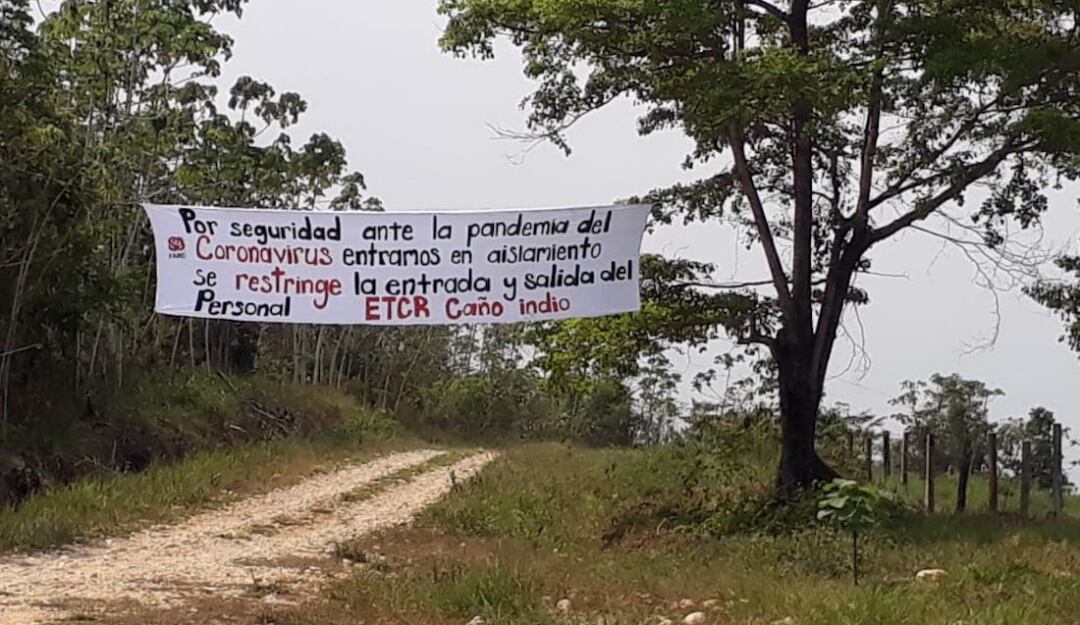 Por seguridad ante la pandemia del
Coronavirus entramos en aislamiento
se restringe la entrada y salida del
Personal ETCR Caño indio
FARC